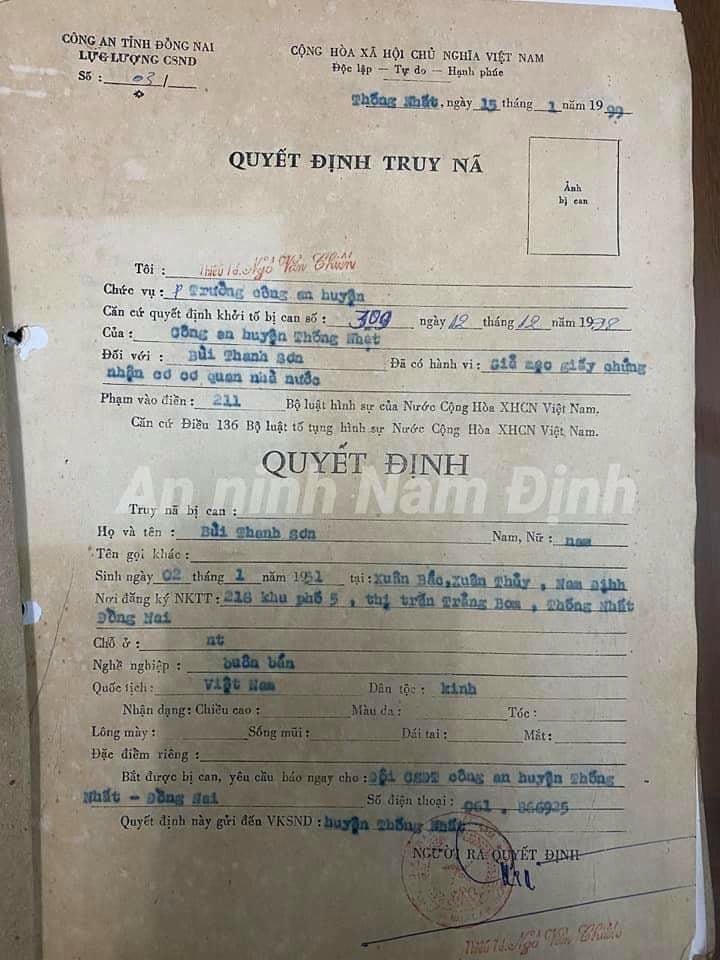 CÔNG AN TỈNH ĐỒNG NAI
LỰC LƯỢNG CSND
Số : 031
CỘNG HÒA XÃ HỘI CHỦ NGHĨA VIỆT NAM
Độc lập — Tự do — Hạnh phúc
Thống Nhất, ngày 15 tháng 1 năm 1999
QUYẾT ĐỊNH TRUY NÃ
Ảnh
bị can
Tôi : Thiếu Tá. Ngô Văn Chiến
Chức vụ : P Trưởng công an huyện
Căn cứ quyết định khởi tố bị can số : 309 ngày 12 tháng 12 năm 1998
Của : Công an huyện Thống Nhất
Đối với : Bùi Thanh Sơn Đã có hành vi : Giả mạo giấy chứng
nhận cơ cơ quan nhà nước
Phạm vào điền : 211 Bộ luật hình sự của Nước Cộng Hòa XHCN Việt Nam.
Căn cứ Điều 136 Bộ luật tố tụng hình sự Nước Cộng Hòa XHCN Việt Nam.
QUYẾT ĐỊNH
An ninh Nam Định
Truy nã bị can :
Họ và tên : Bùi Thanh Sơn Nam, Nữ : nam
Tên gọi khác :
Sinh ngày 02 tháng 1 năm 1951 tại : Xuân Bắc, Xuân Thủy , Nam Định
Nơi đăng ký NKTT : 218 khu phố 5 , thị trấn Trảng Bom , Thống Nhất
Đồng Nai
Chỗ ở : nt
Nghề nghiệp : buôn bán
Quốc tịch : Việt Nam Dân tộc : kinh
Nhận dạng : Chiều cao : Màu da : Tóc :
Lông mày : Sống mũi : Dái tai : Mắt :
Đặc điểm riêng :
Bắt được bị can, yêu cầu báo ngay cho : Đội CSĐT công an huyện Thống
Nhất - Đồng Nai Số điện thoại : 061 . 866925
Quyết định này gửi đến VKSND : huyện Thống Nhất
NGƯỜI RA QUYẾT ĐỊNH
Thiếu Tá. Ngô Văn Chiến